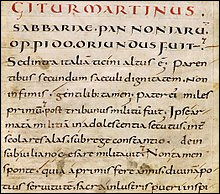 GITUR MARTINUS
SABBARIAE. PANNONIARU.
OPPIDO. ORIUNDUS FUIT.
Sed intra italia ticini altus ē. Paren
tibus secundum saeculi dignitatem. Non
infimis. gentilib; tamen. pater ei miles
primū. post tribunus militū fuit. Ipse ar
matā militiā in adolescentia secutus. int
scolares alas. sub rege constantio. dein
sub iuliano cesare militauit. Non tamen
sponte. quia a primis fere annis diuinā po
tius seruitutē. sacra inlustris pueri infan